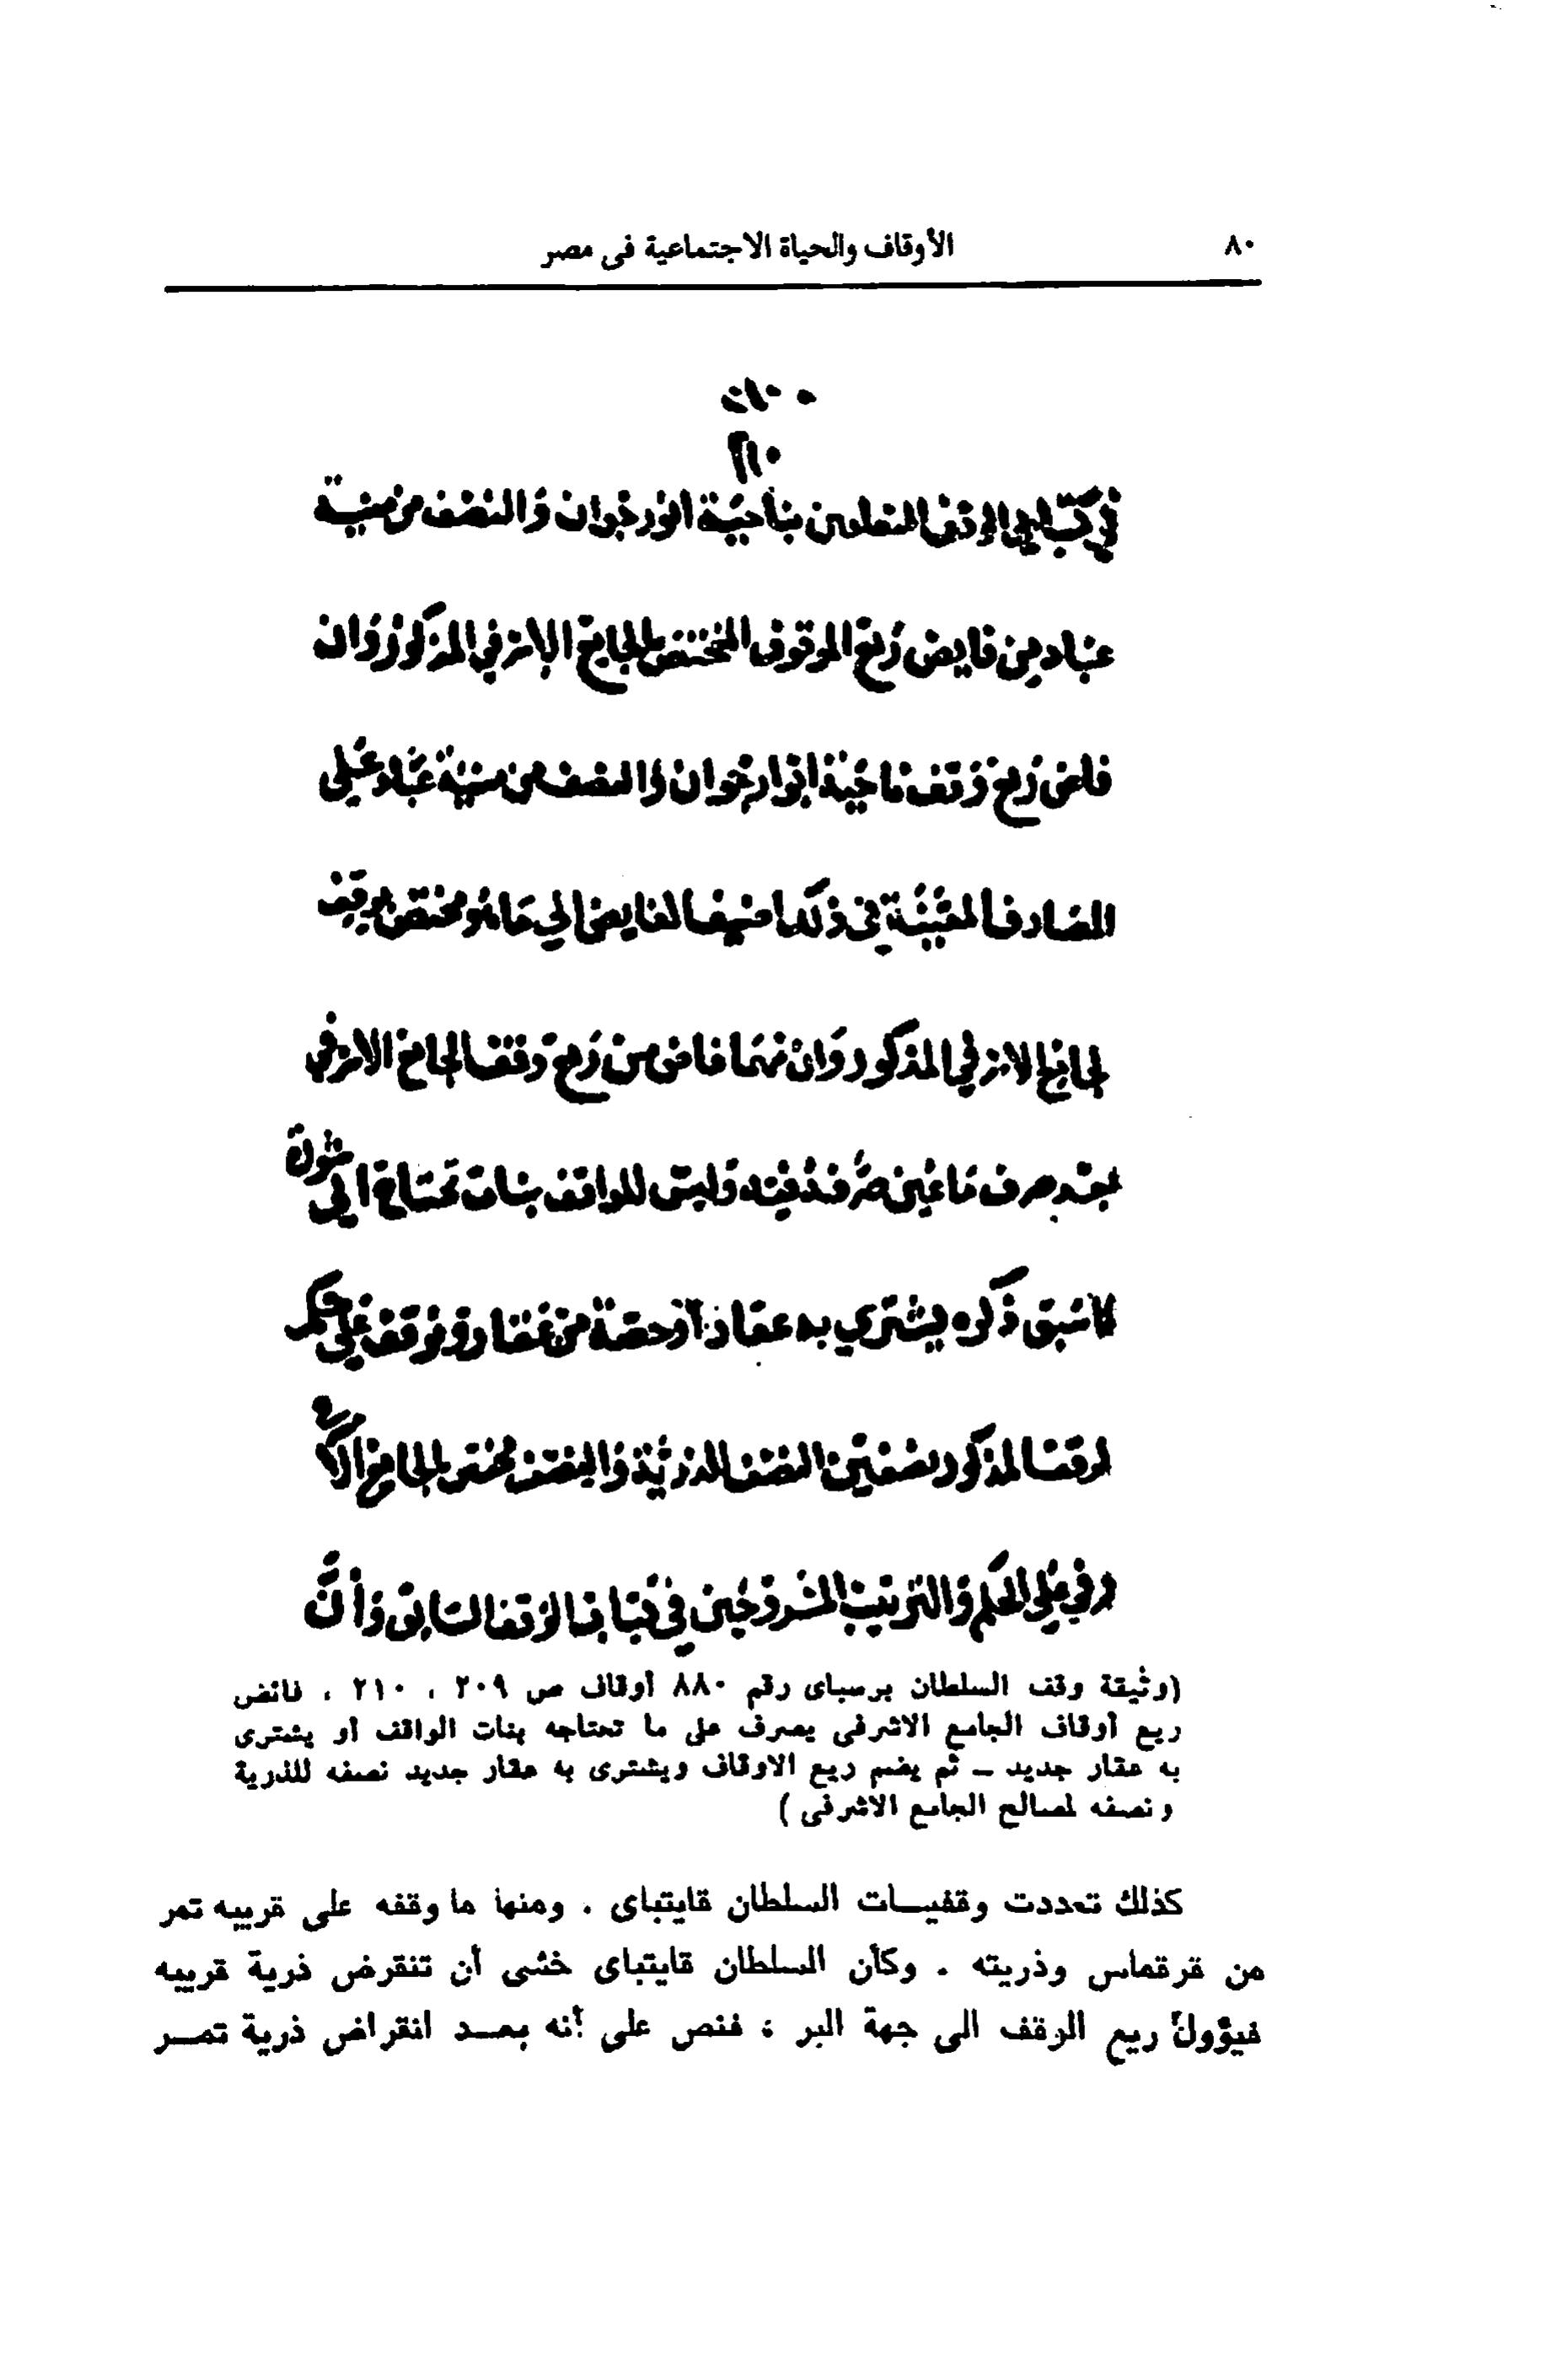 ٨٠ الأوقاف والحياة الاجتماعية فى مصر
٢١٠
في كتابي الوقف المتعلقين بناحية ابو رجوان والنصف من منية
عباد من فايض ريع الموقوف المختص بالجامع الاشرفي المذكور وان
فاض ريع وقف ناحية ابو ارجوان والنصف من منية عباد على
المصارف المعينة في ذلك الفايض الي ما هو مختص بوقف
الجامع الاشرفي المذكور وان مهما فاض من ريع وقف الجامع الاشرفي
بعد صرف ما عين صرفه فيه وليس للواقف بنات تحتاج الى
كما سبق ذكره يشتري به عقار أو حصة من عقار ويوقف على حكم
الوقف المذكور نصفين النصف للذرية والنصف مختص بالجامع
وفي على الحكم والترتيب المشروحين في كتاب الوقف السابق وأن
(وثيقة وقف السلطان برسباى رقم ٨٨٠ أوقاف ص ٢٠٩ ، ٢١٠ ، فائض
ريع أوقاف الجامع الاشرفى يصرف على ما تحتاجه بنات الواقف أو يشترى
به عقار جديد – ثم يضم ريع الاوقاف ويشترى به عقار جديد نصفه للذرية
ونصفه لمصالح الجامع الاشرفى )
كذلك تعددت وقفيات السلطان قايتباى ، ومنها ما وقفه على قريبه تمر
من قرقماس وذريته . وكأن السلطان قايتباى خشى أن تنقرض ذرية قريبه
فيؤول ريع الوقف الى جهة البر ؛ فنص على أنه بعد انقراض ذرية تمر